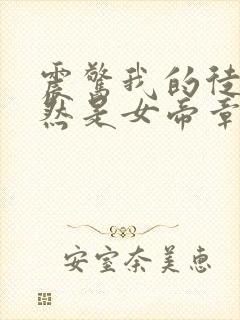 震驚我的徒
然是女帝章
安室奈美惠